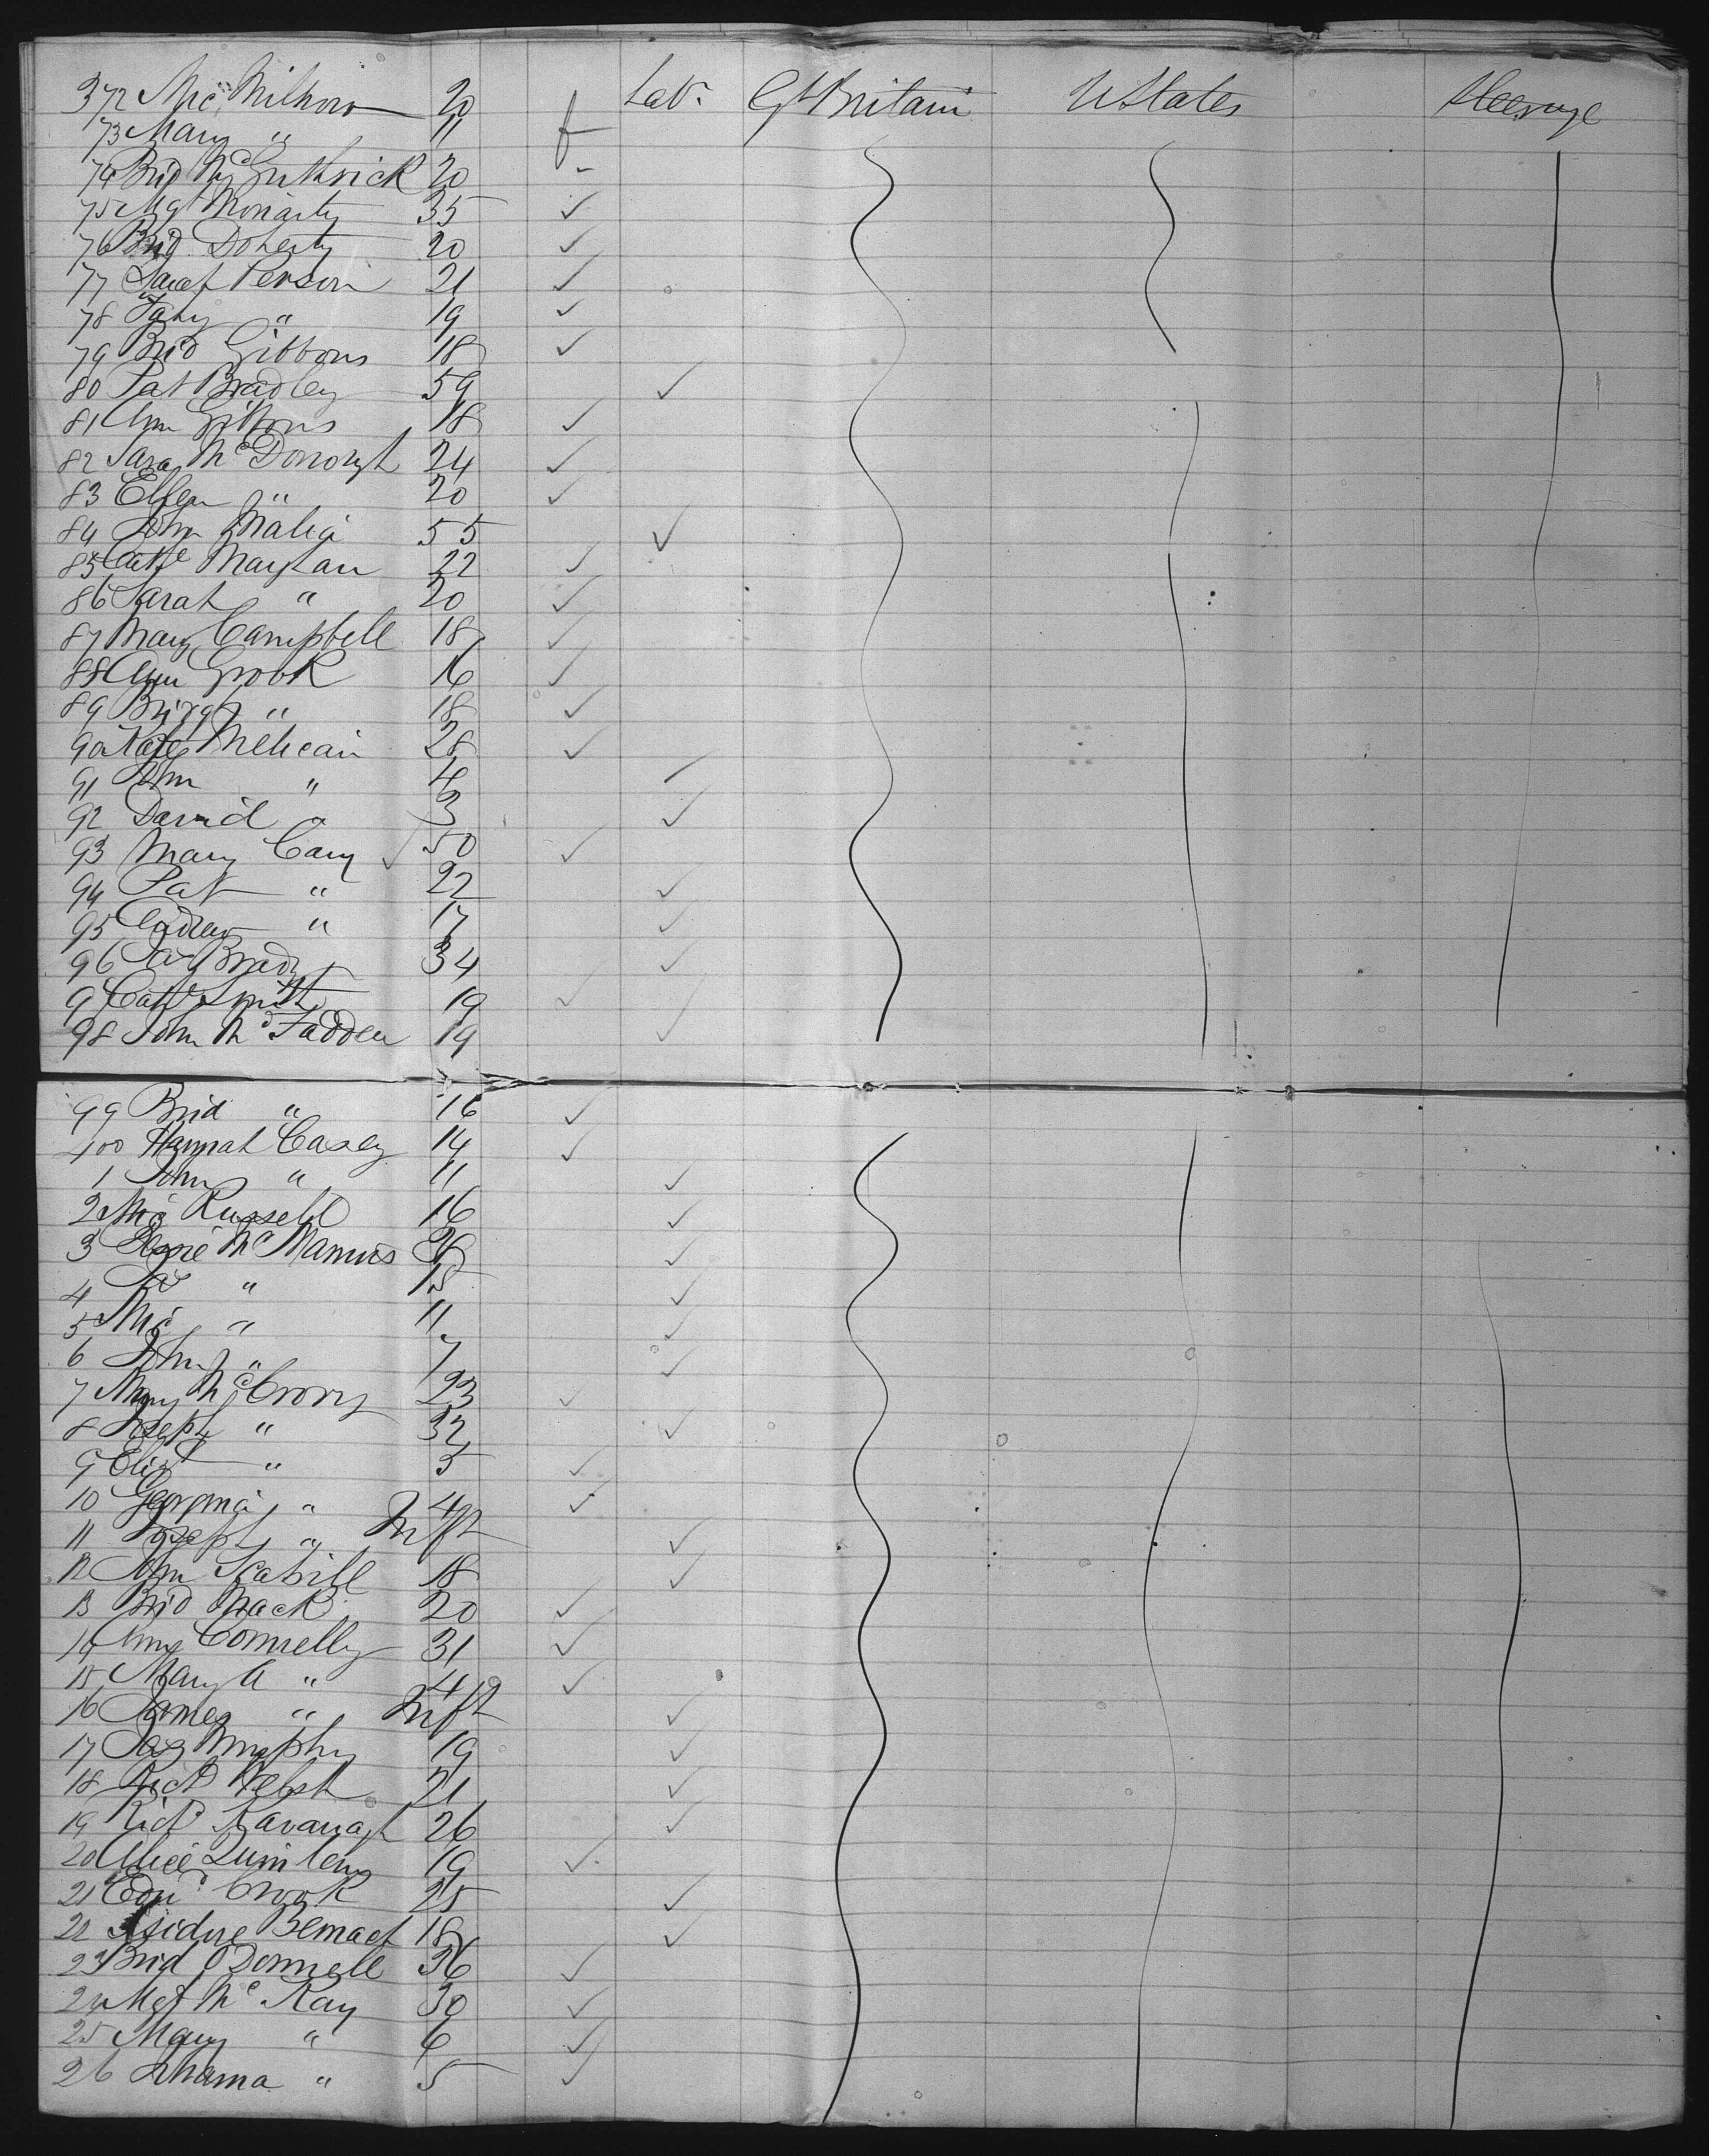 372 Mic 20 f Lab. Gt Britain UStates Steerage
73 Mary " 11
74 Brid 20 -
75 Mgt Moriarty 35 ✓
76 Brid Doherty 20 ✓
77 Person 21 ✓
78 " 19 ✓
79 Brid Gibbons 18 ✓
80 Pat Bradley 59 ✓
81 Ann Gibbons 18 ✓
82 Sara McDonough 24 ✓
83 Ellen " 20 ✓
84 John 55 ✓
85 Cathe 22 ✓
86 Sarah " 20 ✓
87 Mary Campbell 18 ✓
88 Ann Grook 16 ✓
89 Bridgt " 18 ✓
90 Kate 28 ✓
91 John " 4
92 David " 3 ✓
93 Mary Cary ✓ 50 ✓
94 Pat " 22 ✓
95 Andrew " 17 ✓
96 Pat Brady 34 ✓
97 Cath Smith 19 ✓
98 John McFadden 19 ✓
99 Brid " 16 ✓
400 Hannah Casey 14 ✓
1 John " 11 ✓
2 Mic Russell 16 ✓
3 McManus ✓
4 Pat " 15 ✓
5 Mic " 11 ✓
6 John " 7 ✓
7 Mary McCrory 23 ✓
8 Joseph " 32 ✓
9 Elizt " 5 ✓
10 Georgina " 4 ✓
11 Joseph " Inft ✓
12 John Scahill 18 ✓
13 Brid Mack 20 ✓
14 Anne Connelly 31 ✓
15 Mary A " 4 ✓
16 James " Inft ✓
17 Jas Murphy 19 ✓
18 Richd Welsh 21 ✓
19 Richd Kavanagh 26 ✓
20 Alice Quinlan 19 ✓
21 Edwd Crook 25 ✓
22 Isidore 18 ✓
23 Brid ODonnell 36 ✓
24 Mgt McKay 30 ✓
25 Mary " 6 ✓
26 " 5 ✓